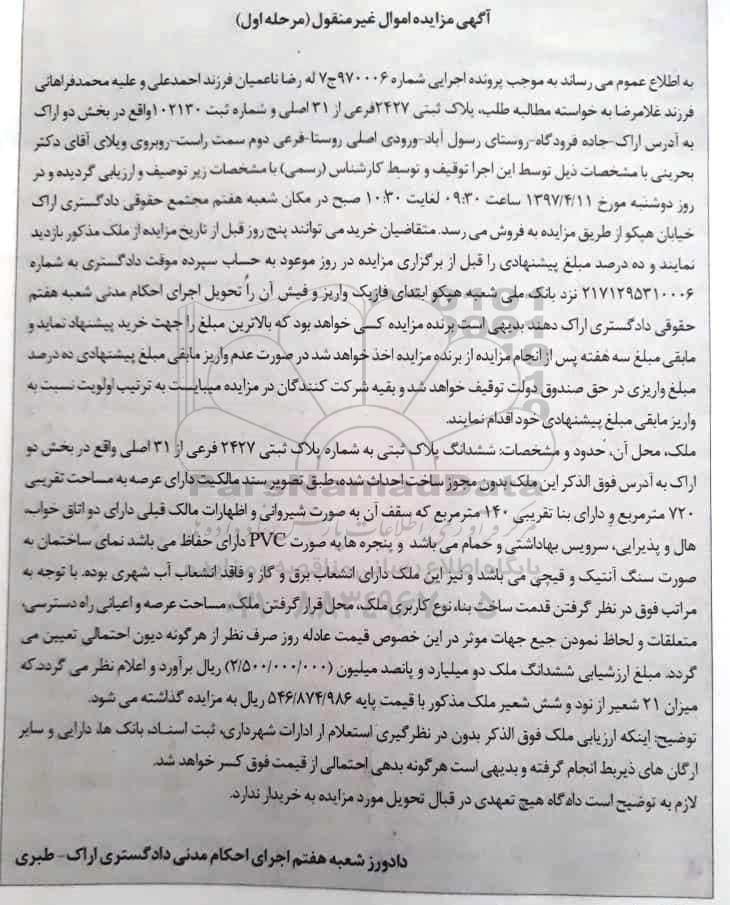 آگهی مزایده اموال غیر منقول (مرحله اول)
به اطلاع عموم می رساند به موجب پرونده اجرایی شماره ۹۷۰۰۰۶ج۷ له رضا ناعمیان فرزند احمدعلی و علیه محمدفراهانی
فرزند غلامرضا به خواسته مطالبه طلب، پلاک ثبتی ۲۴۲۷فرعی از ۳۱ اصلی و شماره ثبت ۱۰۲۱۳۰واقع در بخش دو اراک
به آدرس اراک-جاده فرودگاه-روستای رسول آباد-ورودی اصلی روستا-فرعی دوم سمت راست-روبروی ویلای آقای دکتر
بحرینی با مشخصات ذیل توسط این اجرا توقیف و توسط کارشناس (رسمی) با مشخصات زیر توصیف و ارزیابی گردیده و در
روز دوشنبه مورخ ۱۳۹۷/۴/۱۱ ساعت ۰۹:۳۰ لغایت ۱۰:۳۰ صبح در مکان شعبه هفتم مجتمع حقوقی دادگستری اراک
خیابان هپکو از طریق مزایده به فروش می رسد. متقاضیان خرید می توانند پنج روز قبل از تاریخ مزایده از ملک مذکور بازدید
نمایند و ده درصد مبلغ پیشنهادی را قبل از برگزاری مزایده در روز موعود به حساب سپرده موقت دادگستری به شماره
۲۱۷۱۲۹۵۳۱۰۰۰۶ نزد بانک ملی شعبه هپکو ابتدای فازیک واریز و فیش آن را تحویل اجرای احکام مدنی شعبه هفتم
حقوقی دادگستری اراک دهند بدیهی است برنده مزایده کسی خواهد بود که بالاترین مبلغ را جهت خرید پیشنهاد نماید و
مابقی مبلغ سه هفته پس از انجام مزایده از برنده مزایده اخذ خواهد شد در صورت عدم واریز مابقی مبلغ پیشنهادی ده درصد
مبلغ واریزی در حق صندوق دولت توقیف خواهد شد و بقیه شرکت کنندگان در مزایده میبایست به ترتیب اولویت نسبت به
واریز مابقی مبلغ پیشنهادی خود اقدام نمایند.
ملک، محل آن، حدود و مشخصات: ششدانگ پلاک ثبتی به شماره پلاک ثبتی ۲۴۲۷ فرعی از ۳۱ اصلی واقع در بخش دو
اراک به آدرس فوق الذکر این ملک بدون مجوز ساخت احداث شده، طبق تصویر سند مالکیت دارای عرصه به مساحت تقریبی
۷۲۰ مترمربع و دارای بنا تقریبی ۱۴۰ مترمربع که سقف آن به صورت شیروانی و اظهارات مالک قبلی دارای دو اتاق خواب،
هال و پذیرایی، سرویس بهاداشتی و حمام می باشد و پنجره ها به صورت PVC دارای حفاظ می باشد نمای ساختمان به
صورت سنگ آنتیک و قیچی می باشد و نیز این ملک دارای انشعاب برق و گاز و فاقد انشعاب آب شهری بوده. با توجه به
مراتب فوق در نظر گرفتن قدمت ساخت بنا، نوع کاربری ملک، محل قرار گرفتن ملک، مساحت عرصه و اعیانی راه دسترسی،
متعلقات و لحاظ نمودن جیع جهات موثر در این خصوص قیمت عادله روز صرف نظر از هرگونه دیون احتمالی تعیین می
گردد. مبلغ ارزشیابی ششدانگ ملک دو میلیارد و پانصد میلیون (۲/۵۰۰/۰۰۰/۰۰۰) ریال برآورد و اعلام نظر می گردد.که
میزان ۲۱ شعیر از نود و شش شعیر ملک مذکور با قیمت پایه ۵۴۶/۸۷۴/۹۸۶ ریال به مزایده گذاشته می شود.
توضیح: اینکه ارزیابی ملک فوق الذکر بدون در نظرگیری استعلام از ادارات شهرداری، ثبت اسناد، بانک ها، دارایی و سایر
ارگان های ذیربط انجام گرفته و بدیهی است هرگونه بدهی احتمالی از قیمت فوق کسر خواهد شد.
لازم به توضیح است دادگاه هیچ تعهدی در قبال تحویل مورد مزایده به خریدار ندارد.
دادورز شعبه هفتم اجرای احکام مدنی دادگستری اراک- طبری
ParsNamadData
پایگاه اطلاع رسانی مناقصه و مزایده
۰۲۱-۸۸۳۴۹۶۷۰-۵